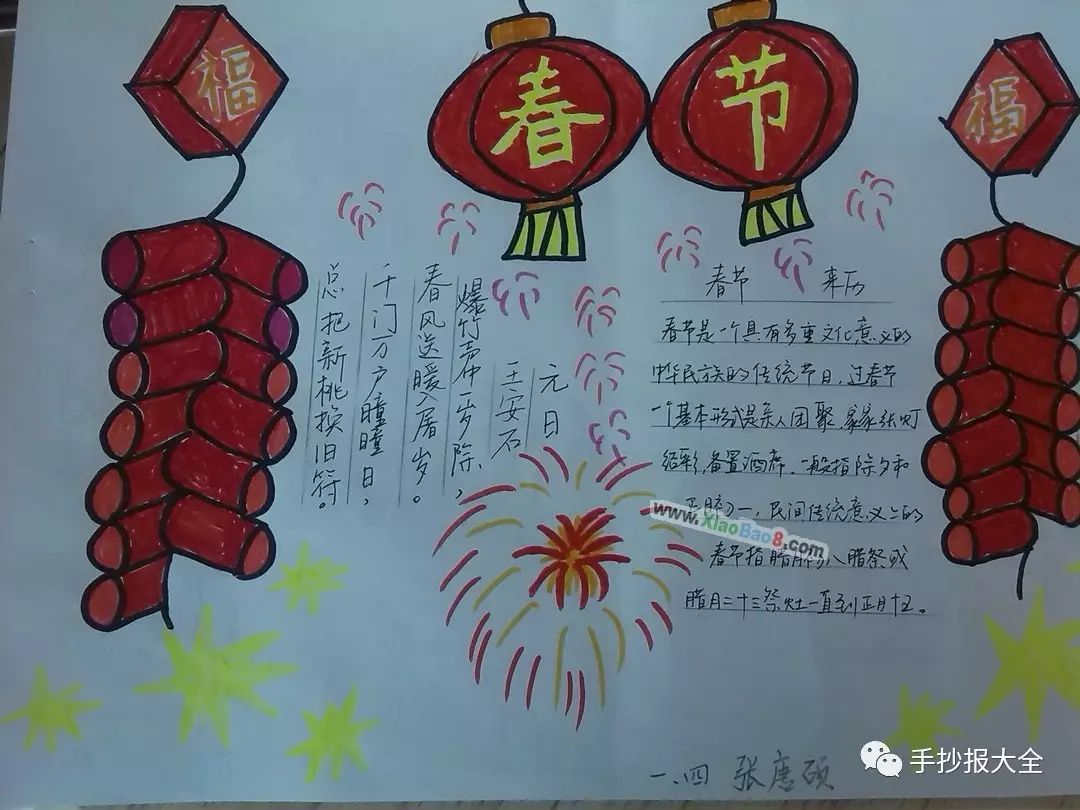 福
春
节
福
元日
王安石
爆竹声中一岁除,
春风送暖入屠岁。
千门万户曈曈日,
总把新桃换旧符。
春节 来历
春节是一个具有多重文化意义的
中华民族的传统节日,过春节
一个基本形式是亲人团聚,家家张灯
结彩,备置酒席。一般指除夕和
正月初一,民间传统意义上的
春节指腊月 八腊祭或
腊月二十三祭灶一直到正月十五。
www.XiaoBao8.com
一.四 张唐硕
手抄报大全